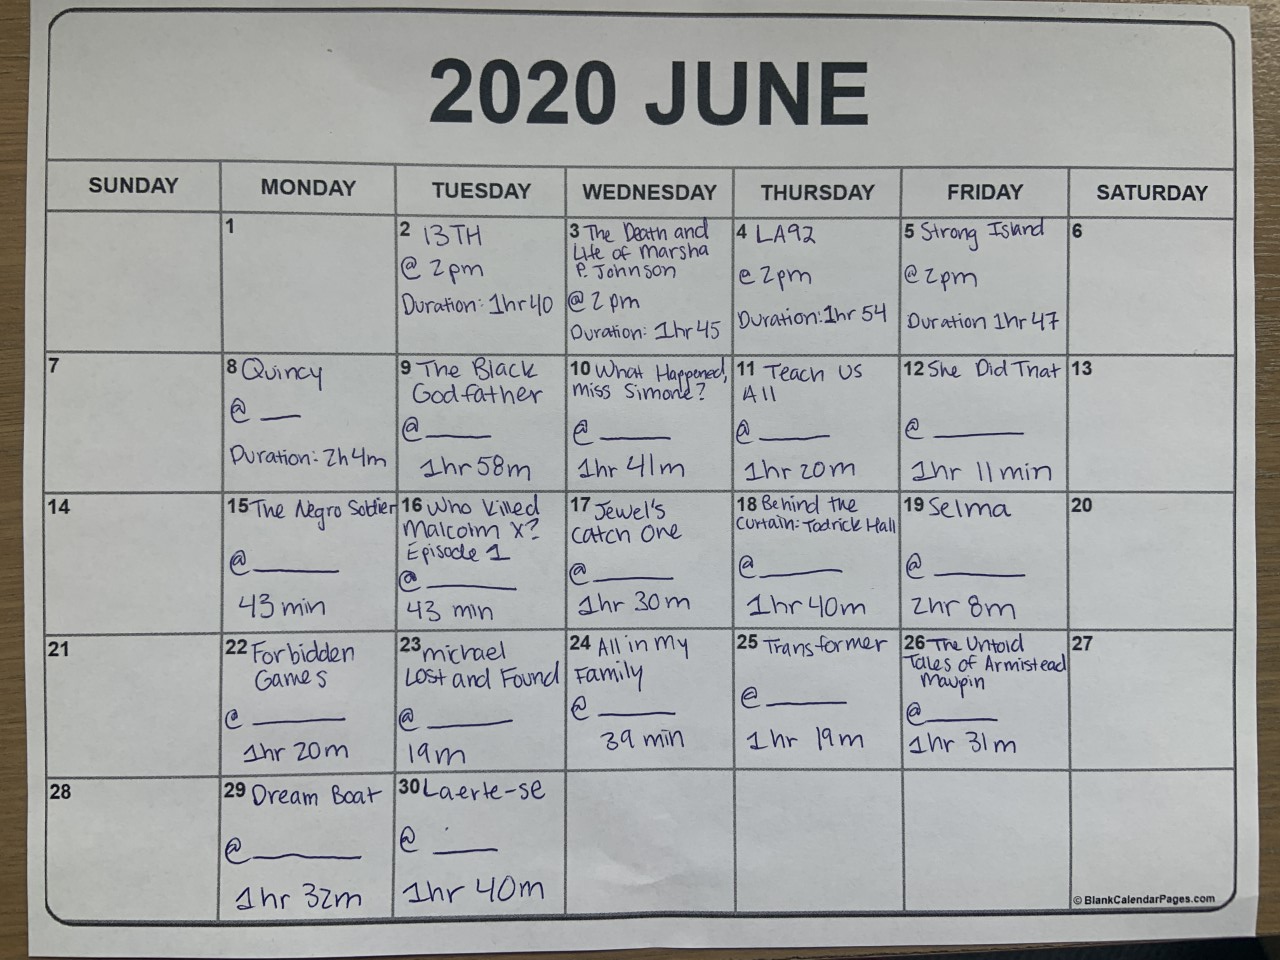 2020 JUNE
SUNDAY MONDAY TUESDAY WEDNESDAY THURSDAY FRIDAY SATURDAY
1
2 13TH
@ 2pm
Duration: 1hr 40
3 The Death and
Life of Marsha
P. Johnson
@ 2 pm
Duration: 1hr 45
4 LA92
@ 2pm
Duration: 1hr 54
5 Strong Island
@ 2pm
Duration 1hr 47
6
7
8 Quincy
@ __
Duration: 2h 4m
9 The Black
Godfather
@ ____
1hr 58m
10 What Happened,
Miss Simone?
@ ____
1hr 41m
11 Teach US
All
@ ____
1hr 20m
12 She Did That
@ ____
1hr 11 min
13
14
15 The Negro Soldier
@ ____
43 min
16 Who Killed
Malcolm X?
Episode 1
@ ____
43 min
17 Jewel's
Catch One
@ ____
1hr 30m
18 Behind the
Curtain: Todrick Hall
@ ____
1hr 40m
19 Selma
@ ____
2hr 8m
20
21
22 Forbidden
Games
@ ____
1hr 20m
23 Michael
Lost and Found
@ ____
19m
24 All in My
Family
@ ____
39 min
25 Transformer
@ ____
1hr 19m
26 The Untold
Tales of Armistead
Maupin
@ ____
1hr 31m
27
28
29 Dream Boat
@ ____
1hr 32m
30 Laerte-se
@ ____
1hr 40m
© BlankCalendarPages.com